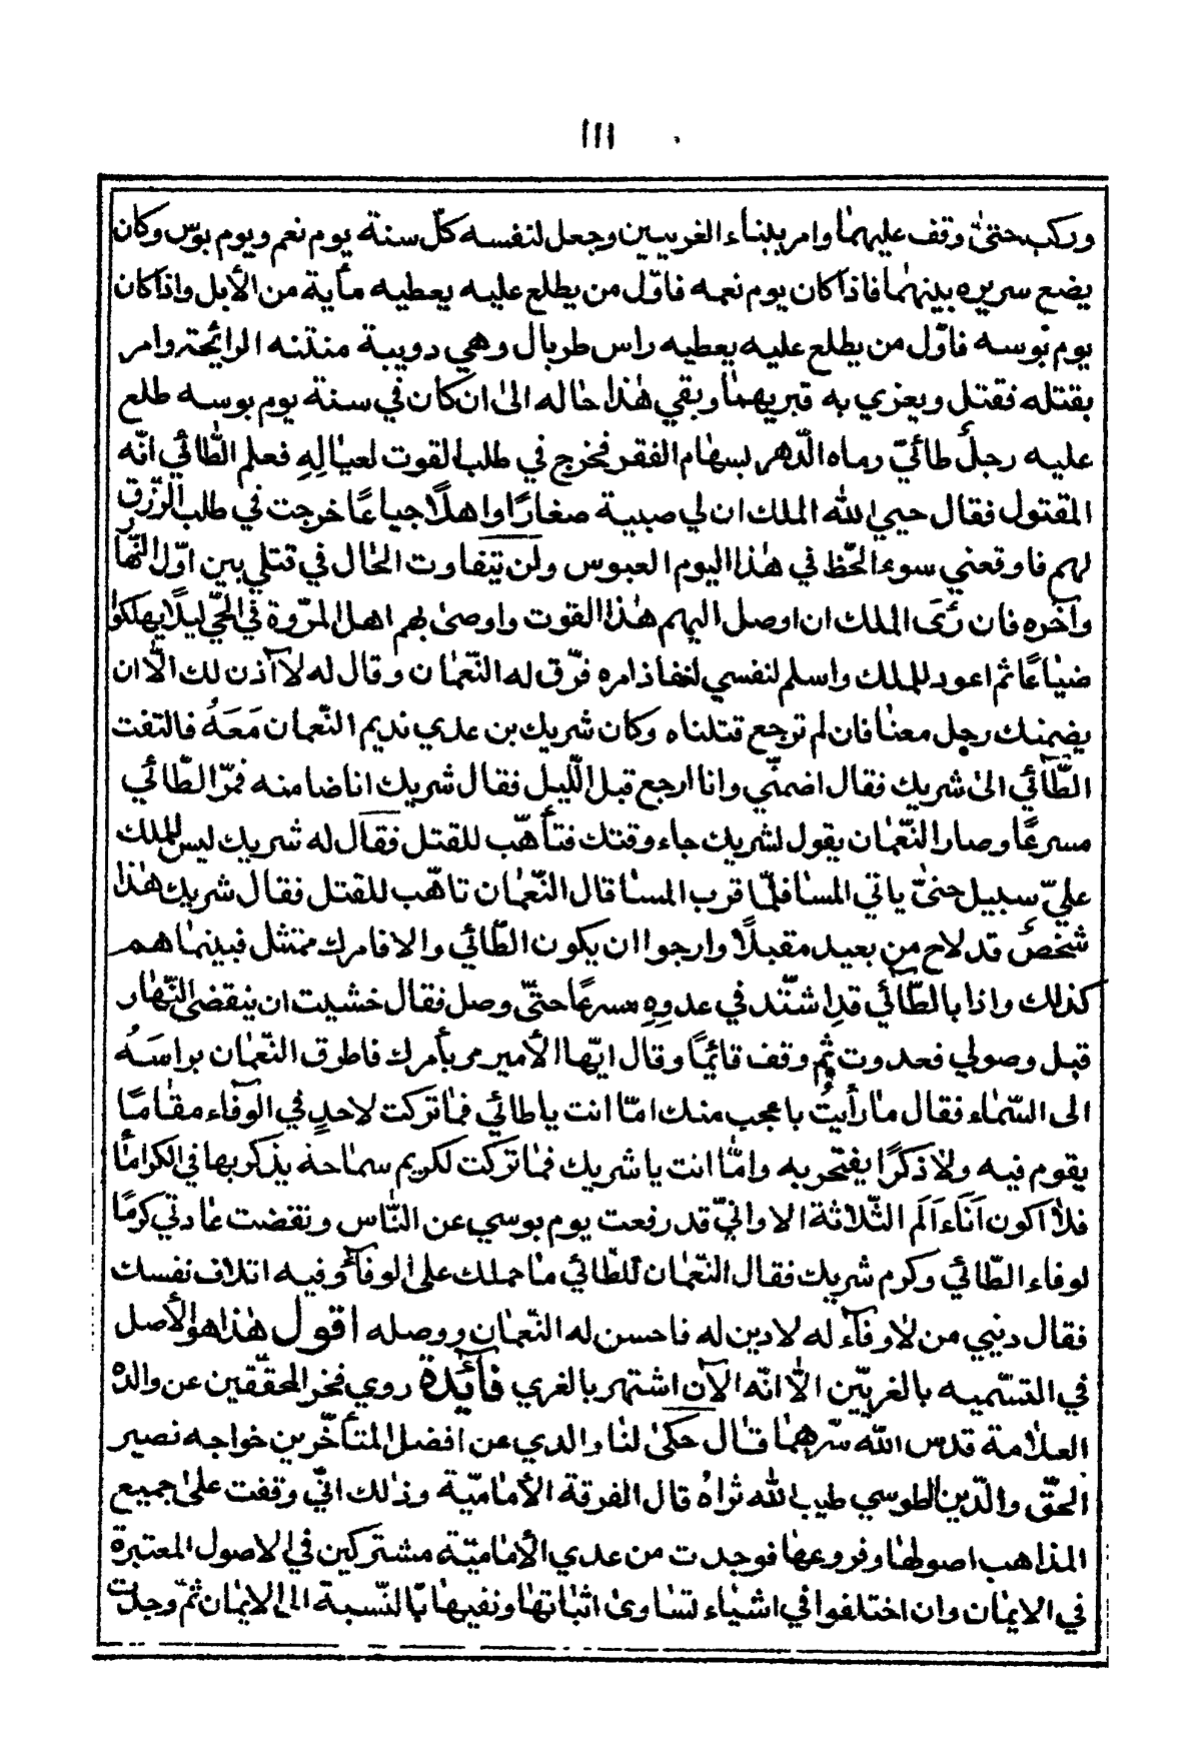 ١١١
وركب حتىٰ وقف عليهمٰا وامر ببناء الغريبين وجعل لنفسه كلّ سنة يوم نعم ويوم بوس وكان
يضع سريره بينهمٰا فاذا كان يوم نعمه فاوّل من يطلع عليه يعطيه مأية من الأبل واذا كان
يوم بوسه فاوّل من يطلع عليه يعطيه راس طربال وهي دويبة منتنه الرائحة وامر
بقتله فقتل ويغري به قبريهمٰا وبقي هٰذا حٰاله الىٰ ان كان في سنة يوم بوسه طلع
عليه رجلٌ طائيّ رماه الدّهر بسهٰام الفقر فخرج في طلب القوت لعيٰالِهِ فعلم الطّائي انّه
المقتول فقال حييٰ الله الملك ان لي صبية صغارًا واهلًا جياعًا خرجت في طلب الرّزق
لهم فاوقعني سوء الحّظ في هٰذا اليوم العبوس ولن يتفاوت الحٰال في قتلي بين اوّل النّهٰا
وآخره فان رَئَى الملك ان اوصل اليهم هٰذا القوت واوصىٰ بهم اهل المرّوة في الحّي ليلًا يهلكوا
ضيٰاعًا ثم اعود للملك واسلم لنفسي لنفاذ امره فرّق له النّعمٰان وقال له لا آذن لك الّا ان
يضمنك رجل معنٰا فان لم ترجع قتلناه وكان شريك بن عدي نديم النّعمٰان مَعَهُ فالتفت
الطّائي الىٰ شريك فقال اضمنّي وانا ارجع قبل اللّيل فقال شريك انا ضامنه فمرّ الطّائي
مسرعًا وصار النّعمٰان يقول لشريك جاء وقتك فتأهّب للقتل فقال له شريك ليس للملك
عليّ سبيل حتىّٰ ياتي المسٰا فلمّا قرب المسٰا قال النّعمٰان تاهّب للقتل فقال شريك هٰذا
شخصٌ قد لاح من بعيد مقبلًا وارجوا ان يكون الطّائي والا فامرك ممتثل فبينمٰا هم
كذلك واذا بالطّائي قد اشتّد في عدوِهِ مسرعًا حتّىٰ وصل فقال خشيت ان ينقضي النّهٰار
قبل وصولي فعدوت ثم وقف قائمًا وقال ايّها الأمير مر بأمرك فاطرق النّعمٰان براسَهُ
الى السّمٰاء فقال مٰا رأيتُ باعجب منك امّا انت يا طائي فمٰا تركت لاحدٍ في الوفٰاء مقٰامًا
يقوم فيه ولا ذكرًا يفتخر به وامّٰا انت يا شريك فمٰا تركت لكريم سمٰاحة يذكر بها في الكرامٰا
فلٰا اكون اَنَاءَ اَلَم الثّلاثة الا وانيّ قد رفعت يوم بوسي عن النّٰاس ونقضت عٰادتي كرمًا
لوفاء الطّائي وكرم شريك فقال النّعمٰان للطّائي مٰا حملك على الوفٰآء وفيه اتلاف نفسك
فقال ديني من لٰا وفٰآء له لا دين له فاحسن له النّعمٰان ووصله اقول هٰذا هو الأصل
في التّسميه بالغريّين الّٰا انّه الآن اشتهر بالغري فآئدة روي فخر المحقّقين عن والده
العلٰامة قدس الله سّرهمٰا قٰال حكىٰ لنٰا والدي عن افضل المتأخّرين خواجه نصير
الحّق والدّين الطوسي طيب الله ثراهُ قال الفرقة الأمٰاميّة وذٰلك انيّ وقفت علىٰ جميع
المذاهب اصولهٰا وفروعهٰا فوجدت من عدي الأمٰاميّة مشتركين في الاصول المعتبرة
في الايمٰان وان اختلفوا في اشيٰاء تسٰاوىٰ اثبٰاتهٰا ونفيهٰا بالنّسبة الى الايمٰان ثمّ وجدت